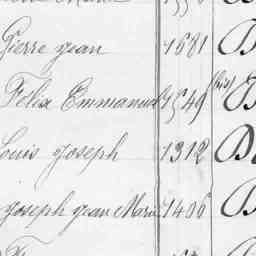 Pierre jean 1581 D
Felix Emmanuel 1549 (bis) D
Louis joseph 1312 D
joseph jean Marie 1406 D